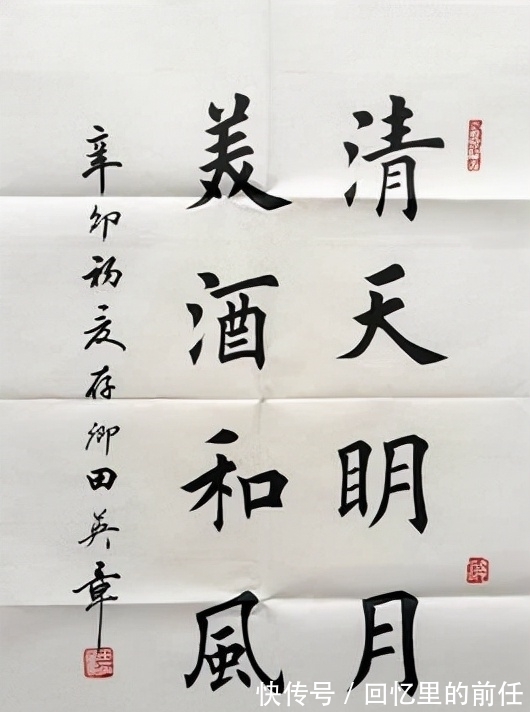 清天明月
美酒和風
辛卯初夏存卿田英章
快传号 / 回忆里的前任